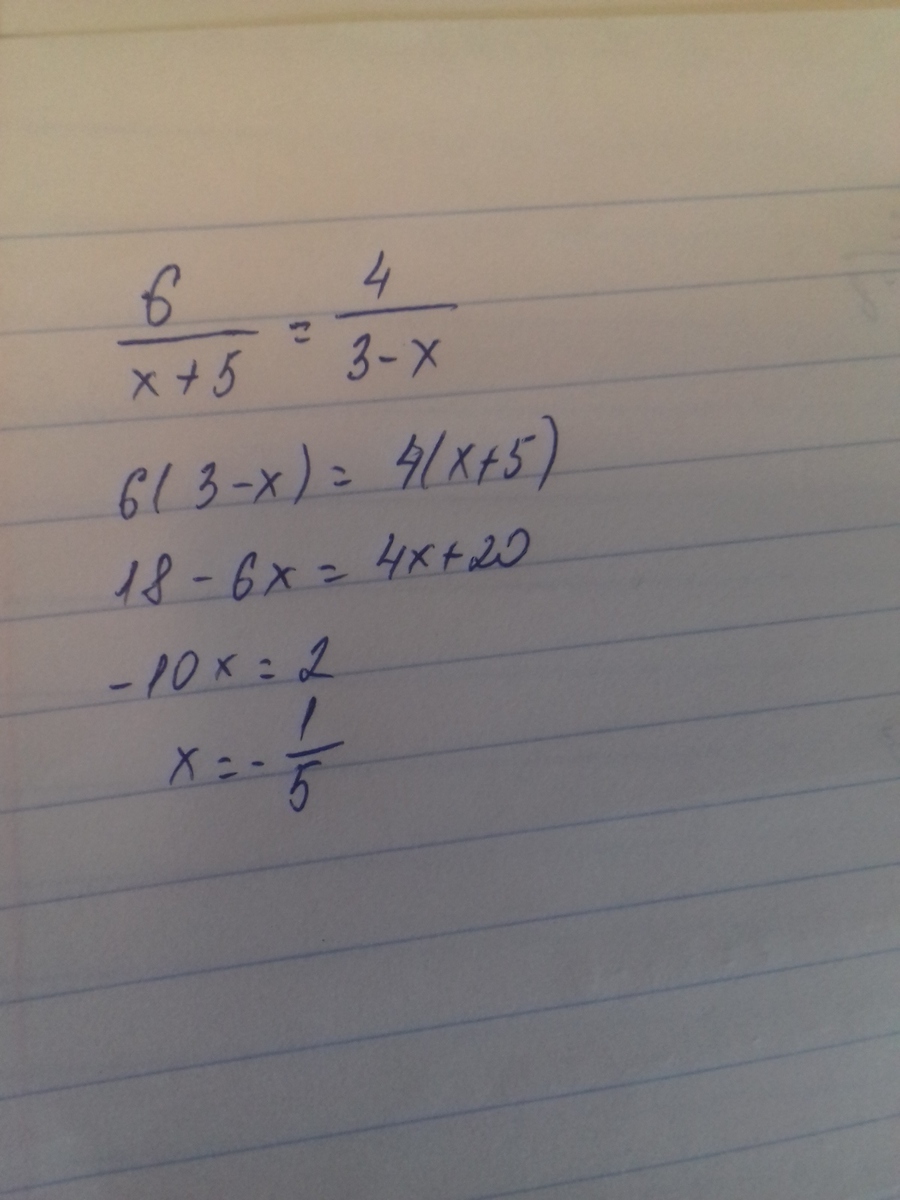 6/(x+5) = 4/(3-x)
6(3-x) = 4(x+5)
18 - 6x = 4x+20
-10x = 2
x = - 1/5